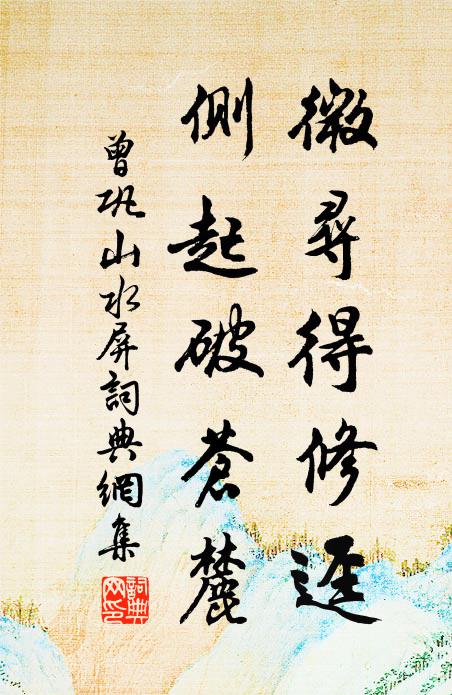 微尋得修逕
側起破蒼麓
曾巩山水屏詞典網集
詞典网印